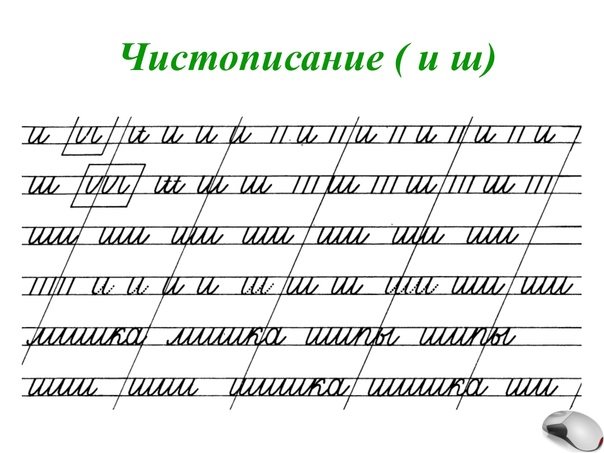 Чистописание ( и ш)
и и и и и и и и и и и
ш ш ш ш ш ш ш ш
ши ши ши ши ши ши ши
и и и и ш ш ш ши ши ши
мишка мишка шипы шипы
шишка шишка ши